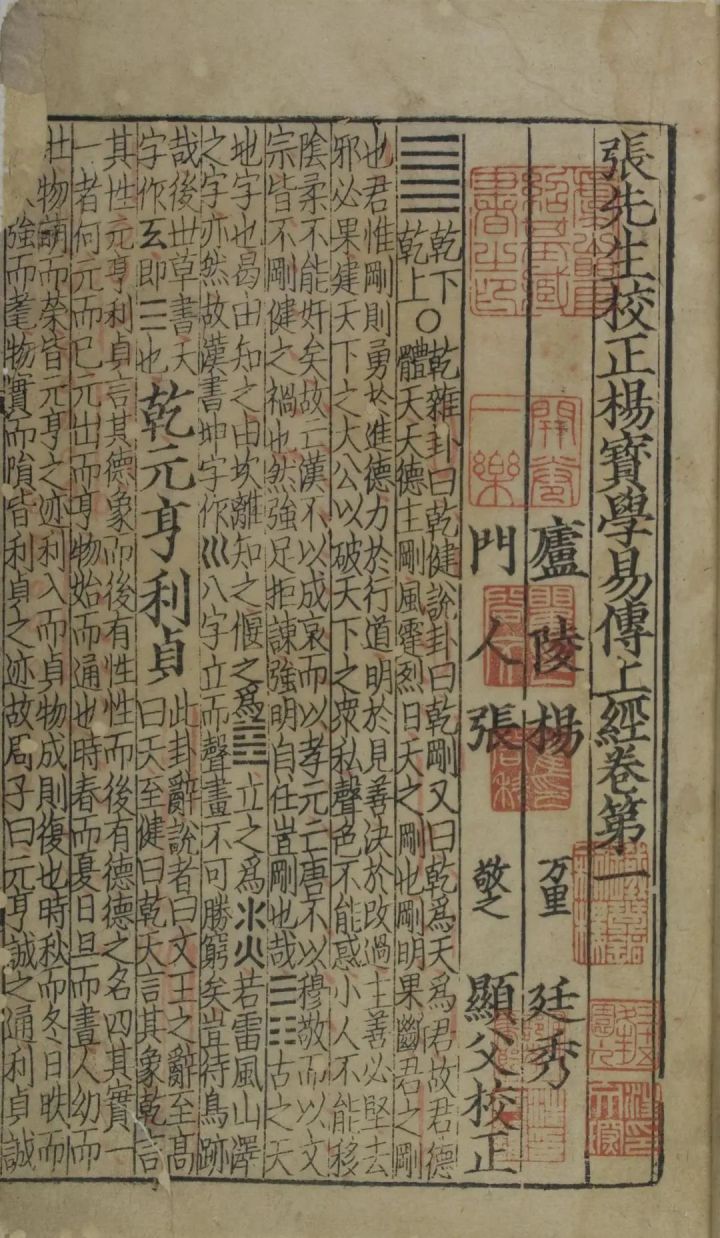 張先生校正楊寶學易傳上經卷第一
廬陵楊 万里 廷秀
門人張 敬之 顯父校正
䷀乾下乾上○乾雜卦曰乾健說卦曰乾剛又曰乾爲天爲君故君德
體天天德主剛風霆烈日天之剛也剛明果斷君之剛
也君惟剛則勇於進德力於行道明於見善決於改過主善必堅去
邪必果建天下之大公以破天下之衆私聲色不能惑小人不能移
陰柔不能奸矣故亡漢不以成哀而以孝元亡唐不以穆敬而以文
宗皆不剛健之禍也然強足拒諫強明自任豈剛也哉☰☷古之天
地字也曷由知之由坎離知之偃之爲☵☲立之爲水火若雷風山澤
之字亦然故漢書坤字作巛八字立而聲畫不可勝窮矣豈待鳥跡
哉後世草書天字作𠀑即☰也
乾元亨利貞
此卦辭說者曰文王之辭至髙
曰天至健曰乾天言其象乾言
其性元亨利貞言其德象而後有性性而後有德德之名四其實一
一者何元而已元出而亨物始而通也時春而夏日旦而晝人幼而
壯物萌而榮皆元亨之迹利入而貞物成則復也時秋而冬日昳而
強而耄物實而隕皆利貞之迹故周子曰元亨誠之通利貞誠